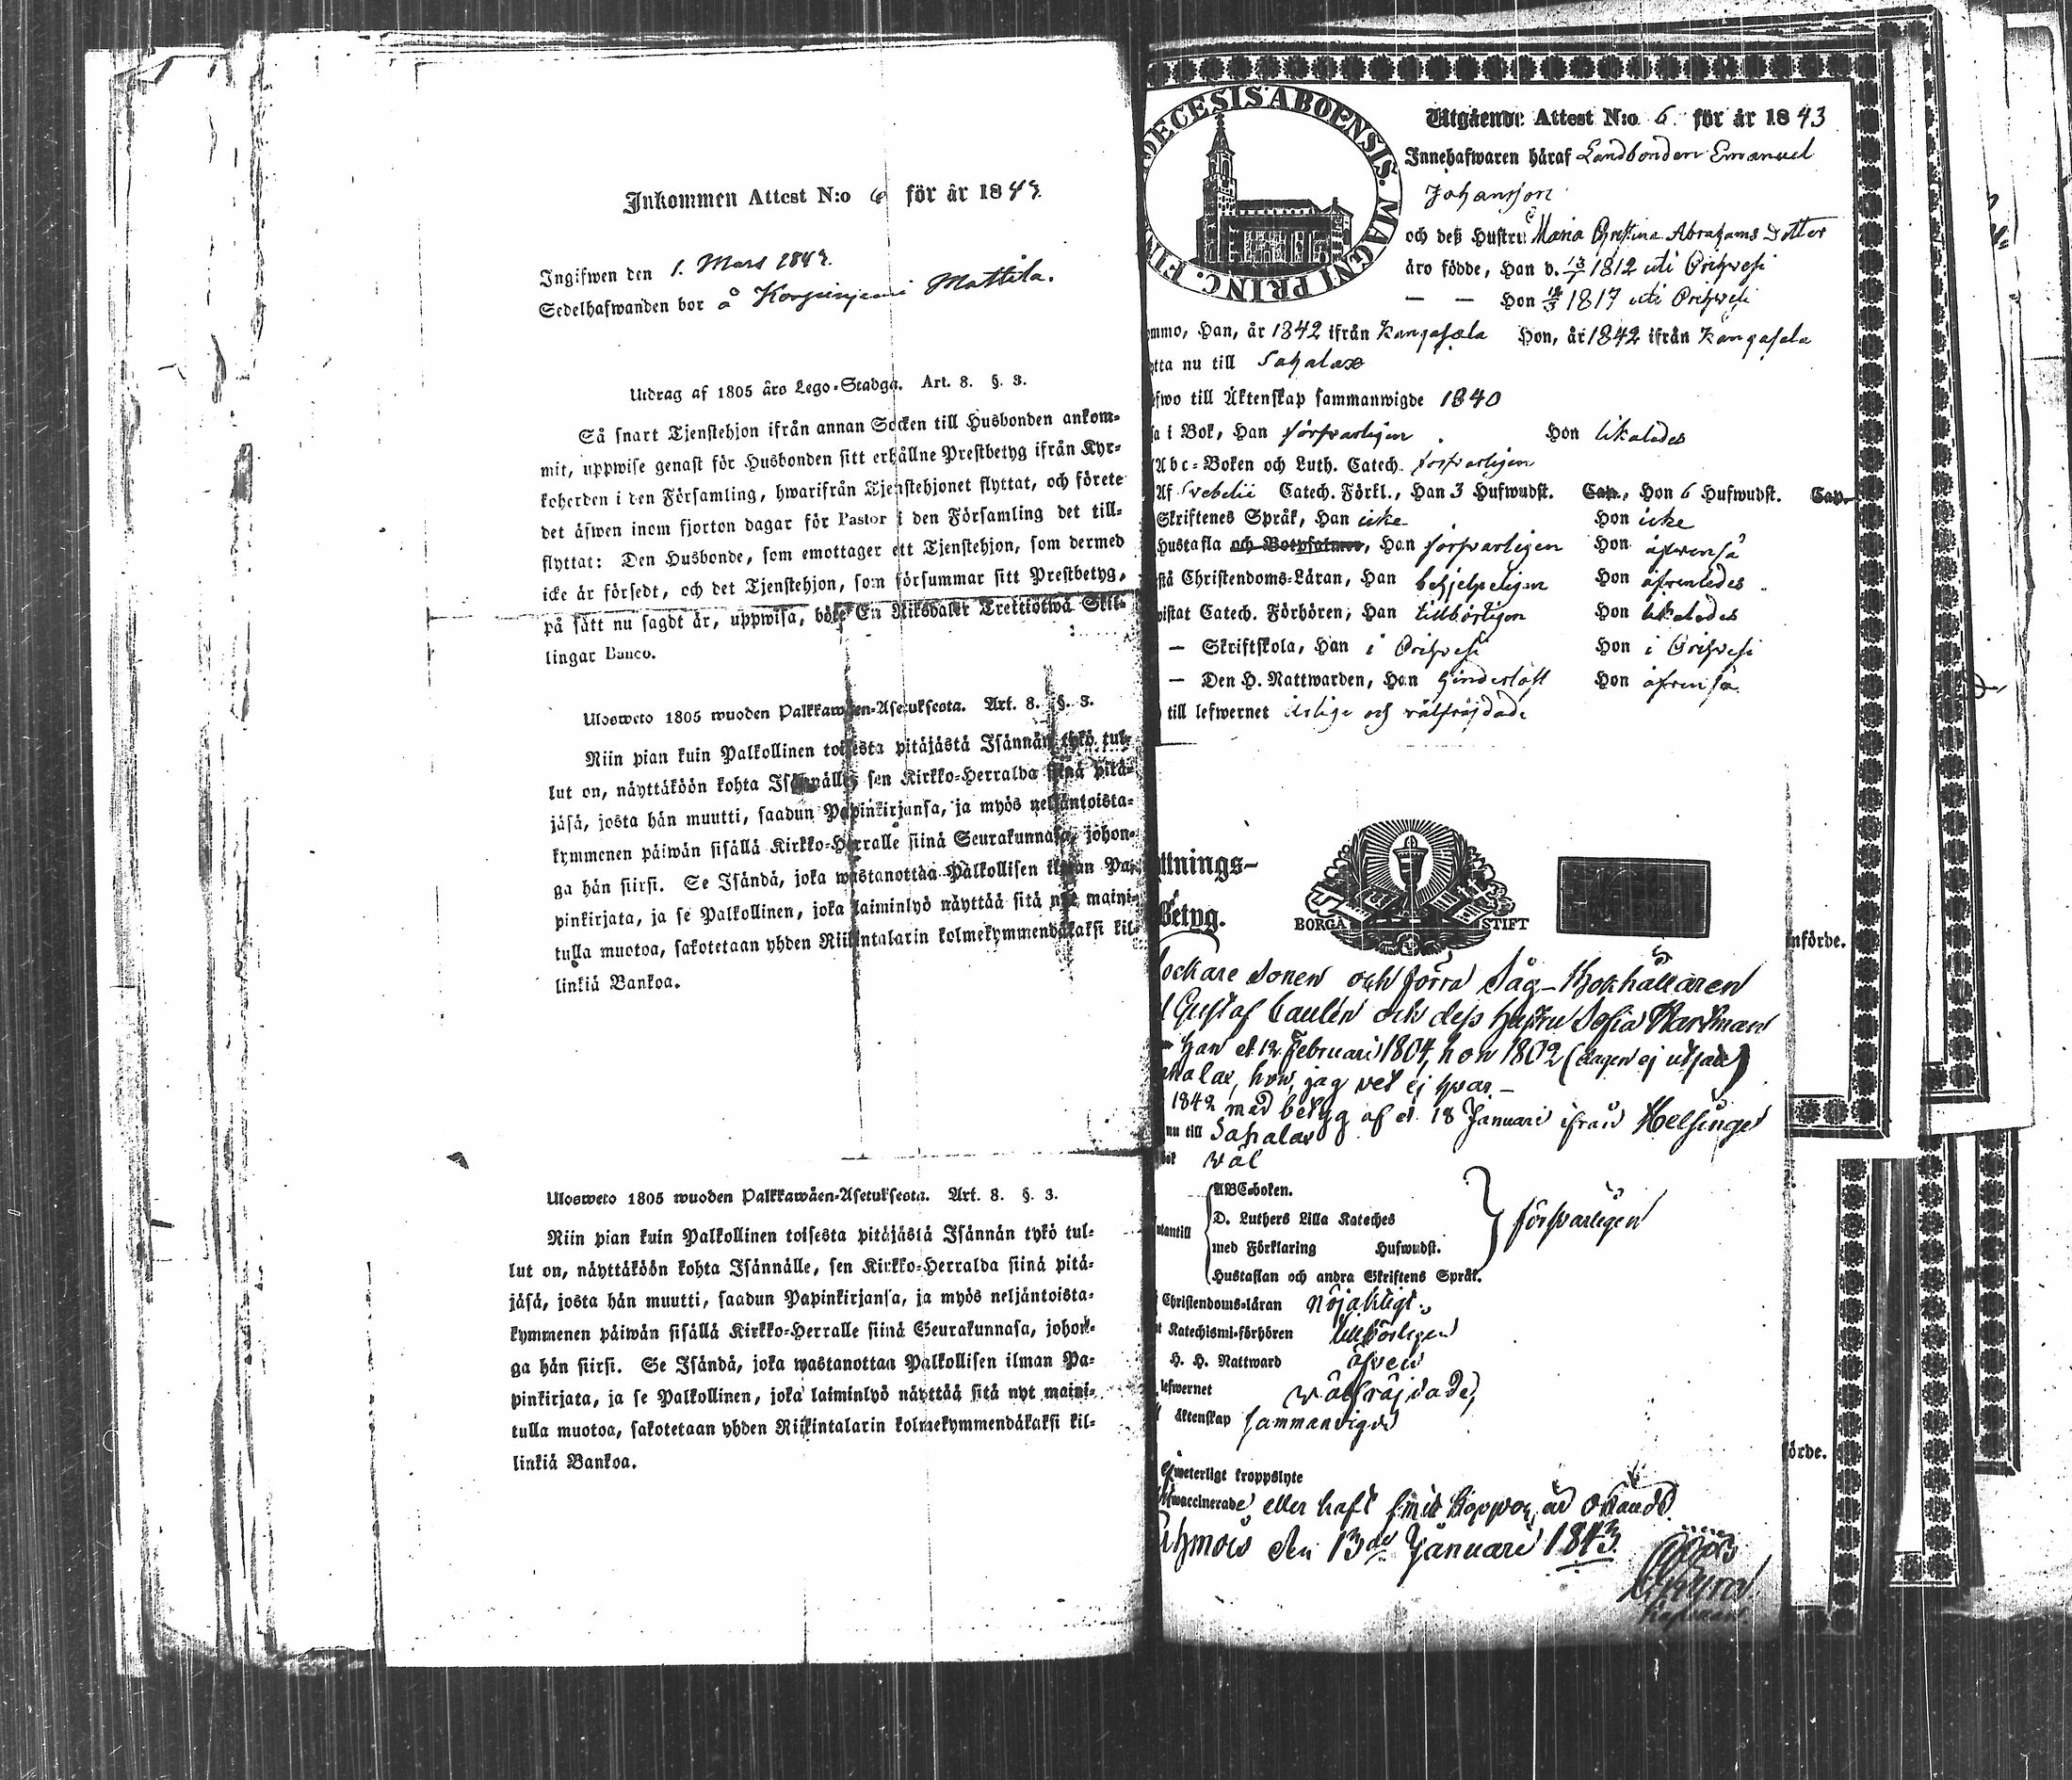 Inkommen Attest N:o 6 för år 1843.
Ingifwen den 1. Mars 1843.
Sedelhafwanden bor å Mattila.
Utdrag af 1805 års Lego-Stadga. Art. 8. §. 3.
Så snart Tjenstehjon ifrån annan Socken till Husbonden ankom-
mit, uppwise genast för Husbonden sitt erhållne Prestbetyg ifrån Kyr-
koherden i den Församling, hwarifrån Tjenstehjonet flyttat, och förete
det äfwen inom fjorton dagar för Pastor i den Församling det till-
flyttat: Den Husbonde, som emottager ett Tjenstehjon, som dermed
icke är försedt, och det Tjenstehjon, som försummar sitt Prestbetyg,
på sätt nu sagdt är, uppwisa, böte En Riksdaler Trettiotwå Skil-
lingar Banco.
Ulosweto 1805 wuoden Palkkawäen-Asetuksesta. Art. 8. §. 3.
Niin pian kuin Palkollinen toisesta pitäjästä Isännän tykö tul-
lut on, näyttäköön kohta Isännälle, sen Kirkko-Herralda siinä pitä-
jäsä, josta hän muutti, saadun Papinkirjansa, ja myös neljäntoista-
kymmenen päiwän sisällä Kirkko-Herralle siinä Seurakunnasa, johon-
ga hän siirsi. Se Isändä, joka wastanottaa Palkollisen ilman Pa-
pinkirjata, ja se Palkollinen, joka laiminlyö näyttää sitä nyt maini-
tulla muotoa, sakotetaan yhden Riikintalarin kolmekymmendäkaksi kil-
linkiä Bankoa.
Ulosweto 1805 wuoden Palkkawäen-Asetuksesta. Art. 8. §. 3.
Niin pian kuin Palkollinen toisesta pitäjästä Isännän tykö tul-
lut on, näyttäköön kohta Isännälle, sen Kirkko-Herralda siinä pitä-
jäsä, josta hän muutti, saadun Papinkirjansa, ja myös neljäntoista-
kymmenen päiwän sisällä Kirkko-Herralle siinä Seurakunnasa, johon-
ga hän siirsi. Se Isändä, joka wastanottaa Palkollisen ilman Pa-
pinkirjata, ja se Palkollinen, joka laiminlyö näyttää sitä nyt maini-
tulla muotoa, sakotetaan yhden Riikintalarin kolmekymmendäkaksi kil-
linkiä Bankoa.
DIOECESIS ABOENSIS. MAGNI PRINC. FIN
Utgående Attest N:o 6. för år 1843
Innehafwaren häraf Landbonden Emanuel
Johansson
och deß Hustru Maria Christina Abrahams Dotter
äro födde, Han d. 13/7 1812 uti Orihvesi
— — Hon 1817 uti Orihvesi
ommo, Han, år 1842 ifrån Kangasala Hon, år 1842 ifrån Kangasala
ytta nu till Sahalax
efwo till Äktenskap sammanwigde 1840
sa i Bok, Han försvarligen. Hon likaledes
Abc-Boken och Luth. Catech. försvarligen
Af Svebelii Catech. Förkl., Han 3 Hufwudst. Cap., Hon 6 Hufwudst. Cap.
Skriftenes Språk, Han icke Hon icke
Hustafla och Botpsalmer, Han försvarligen Hon äfvenså
stå Christendoms-Läran, Han behjelpeligen Hon äfvenledes
wistat Catech. Förhören, Han tillbörligen Hon likaledes
— Skriftskola, Han i Orihvesi Hon i Orihvesi
— Den H. Nattwarden, Han hinderlöst Hon äfvenså
till lefwernet ärlige och välfräjdade
ttnings-
Betyg.
BORGÅ STIFT
lockare Sonen och förra Såg-Bokhållaren
Gustaf Caulén och dess hustru Sofia Hartman
Han d. 12 Februari 1804, hon 1802 (dagen ej utsatt)
ahalax, hon, jag vet ej hvar –
1842 med betyg af d. 18 Januari ifrån Helsinge
nu till Sahalax
bok väl
ABCboken.
D. Luthers Lilla Kateches
utantill med Förklaring Hufwudst. försvarligen
Hustaflan och andra Skriftens Språk.
Christendoms-läran Nöjaktigt.
Katechismi-förhören tillbörligen
H. H. Nattward äfven
lefwernet välfräjdade,
äktenskap sammanvigde
weterligt kroppslyte
waccinerade eller haft smitt koppor, är okändt.
Kuhmois den 13de Januari 1843.
nförde.
förde.